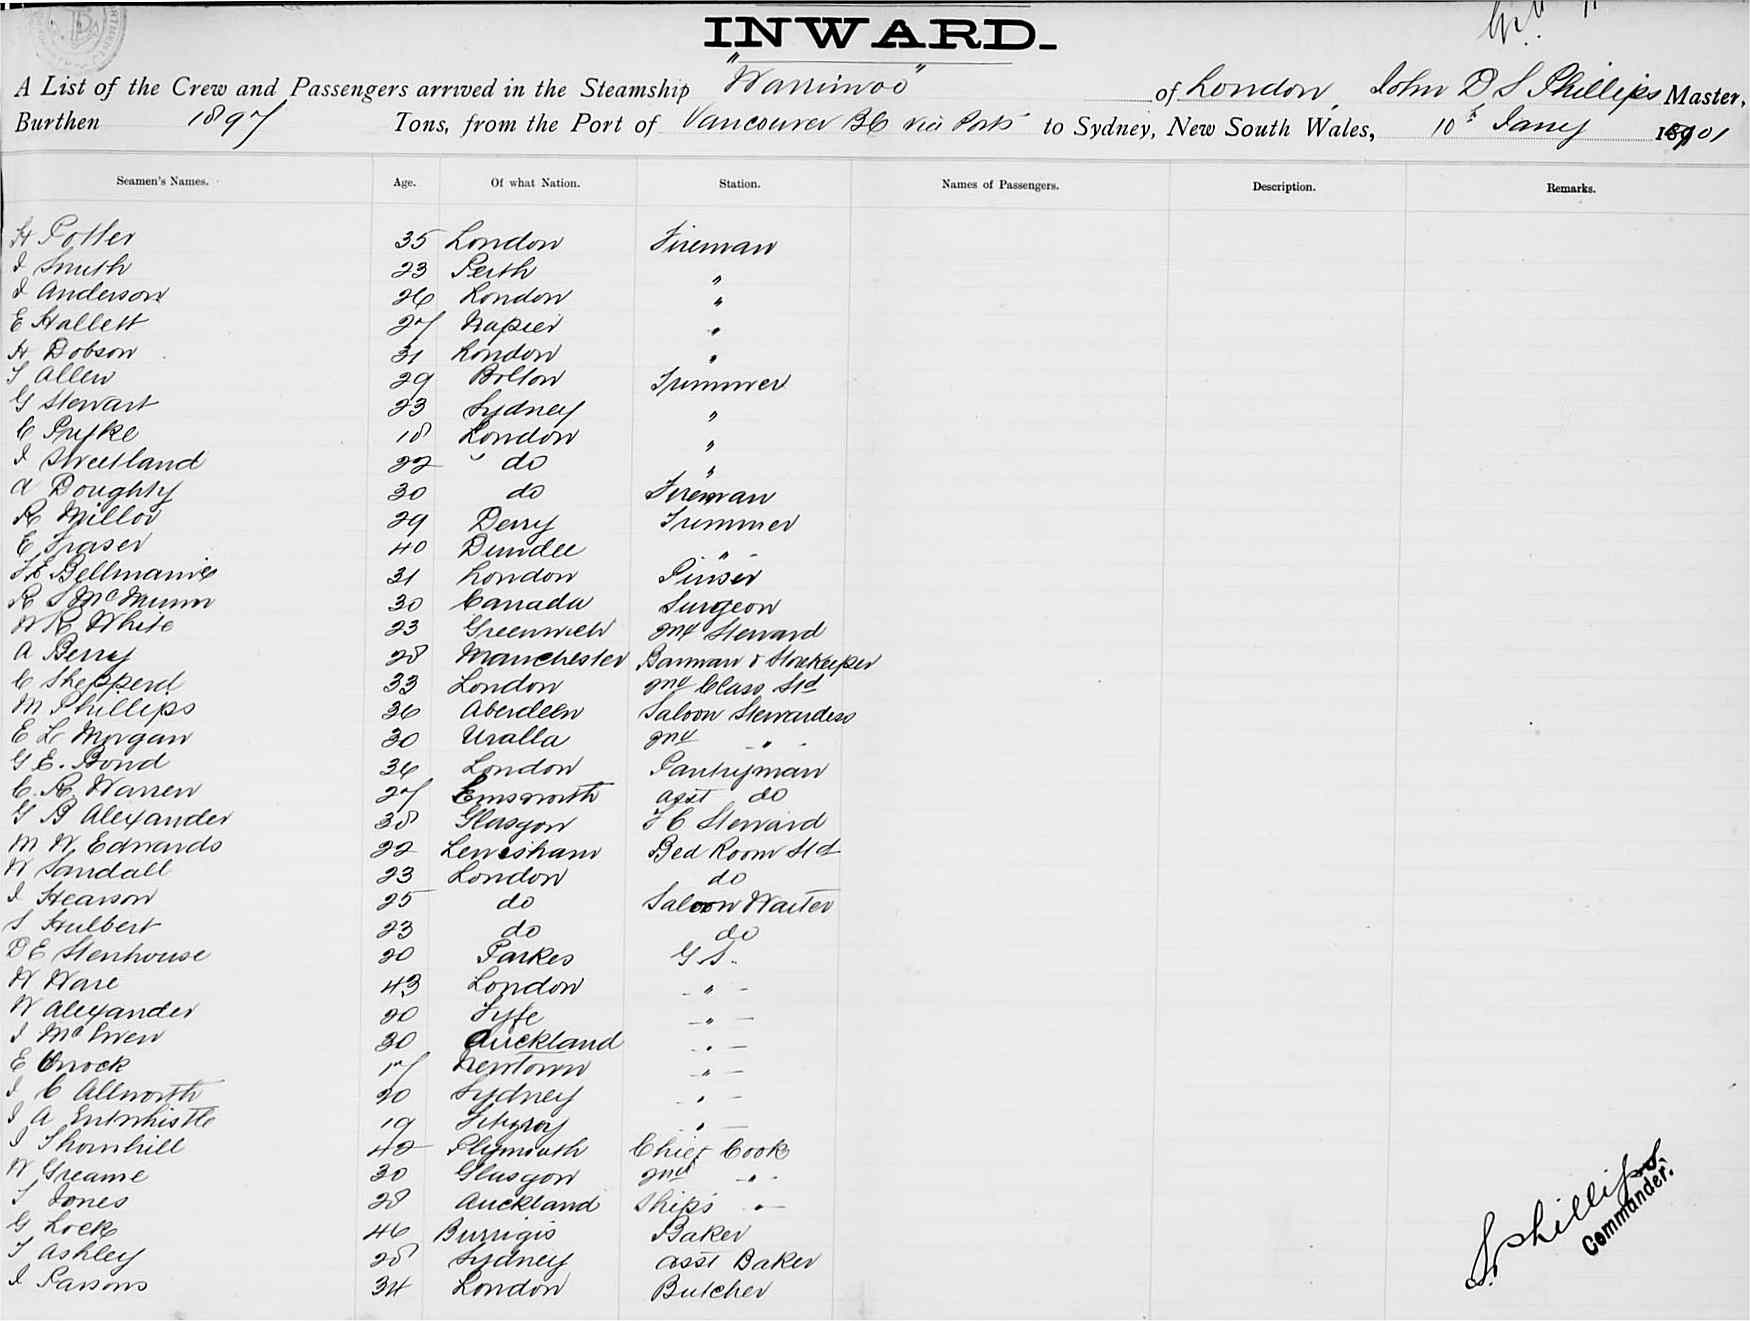 INWARD.
A List of the Crew and Passengers arrived in the Steamship "Warrimoo" of London, John D S Phillips Master,
Burthen 1897 Tons, from the Port of Vancouver BC via Ports to Sydney, New South Wales, 10th Jany 1901
Seamen's Names. Age. Of what Nation. Station. Names of Passengers. Description. Remarks.
H Potter 35 London Fireman
J Smith 23 Perth "
J Anderson 26 London "
E Hallett 27 Napier "
H Dobson 31 London "
T Allen 29 Bolton Trimmer
G Stewart 23 Sydney "
C Pryke 18 London "
J Sweetland 22 " do "
A Doughty 30 do Fireman
R Millor 29 Derry Trimmer
E Fraser 40 Dundee "
31 London Purser
R S McMunn 30 Canada Surgeon
W R White 23 Greenwich 2nd Steward
A Berry 28 Manchester Barman & Storekeeper
C Shepperd 33 London 2nd Class Std
M Phillips 36 Aberdeen Saloon Stewardess
E L Morgan 30 Uralla 2nd - " -
G E. Bond 36 London Pantryman
C. R. Warren 27 Emsworth asst do
G B Alexander 38 Glasgow F C Steward
M W Edwards 22 Lewisham Bed Room Std
W Sandall 23 London do
J Hearson 25 do Saloon Waiter
S Hulbert 23 do do
D E Stenhouse 20 Parkes G S.
W Ware 43 London - " -
W Alexander 20 Fyffe - " -
J McEwen 30 Auckland - " -
E Brock 17 Newtown - " -
J C Allworth 20 Sydney - " -
J A Entwhistle 19 Fitzroy - " -
J Thornhill 42 Plymouth Chief Cook
W Greame 30 Glasgow 2nd - " -
T Jones 28 Auckland Ships - " -
G Lock 46 Baker
T Ashley 28 Sydney asst Baker
J Parsons 34 London Butcher
Phillips
Commander.